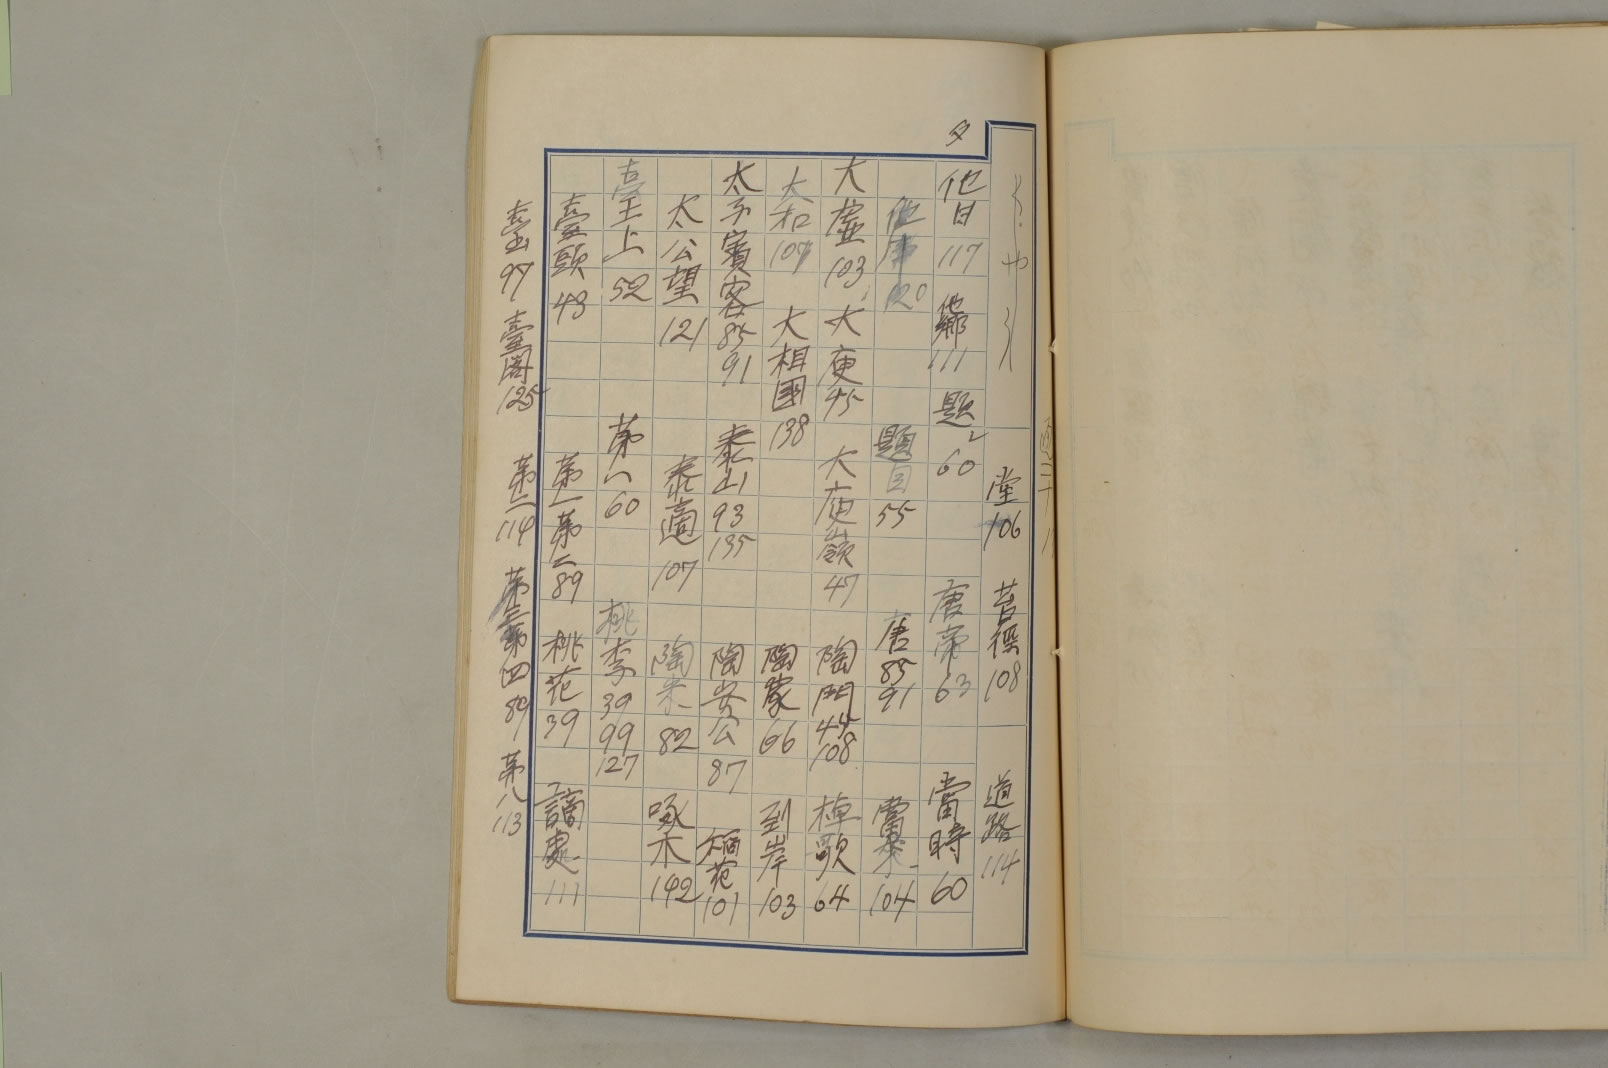 タ
堂 106 苔徑 108 道路 114
他日 117 他鄉 111 題 60 唐帝 63 當時 60
他事 120 題目 55 唐 85 91 104
大虛 103 大庾 45 大庾嶺 47 陶門 45 108 棹歌 64
大和 107 大相國 138 陶家 66 到岸 103
太子賓客 85 91 泰山 93 135 陶安公 87 稻花 101
太公望 121 泰適 107 陶朱 82 啄木 142
臺上 52 第一 60 桃李 39 99 127
臺頭 43 第一第二 89 桃花 39 謫處 111
臺山 97 臺閣 125 第二 114 第三第四 89 第八 113